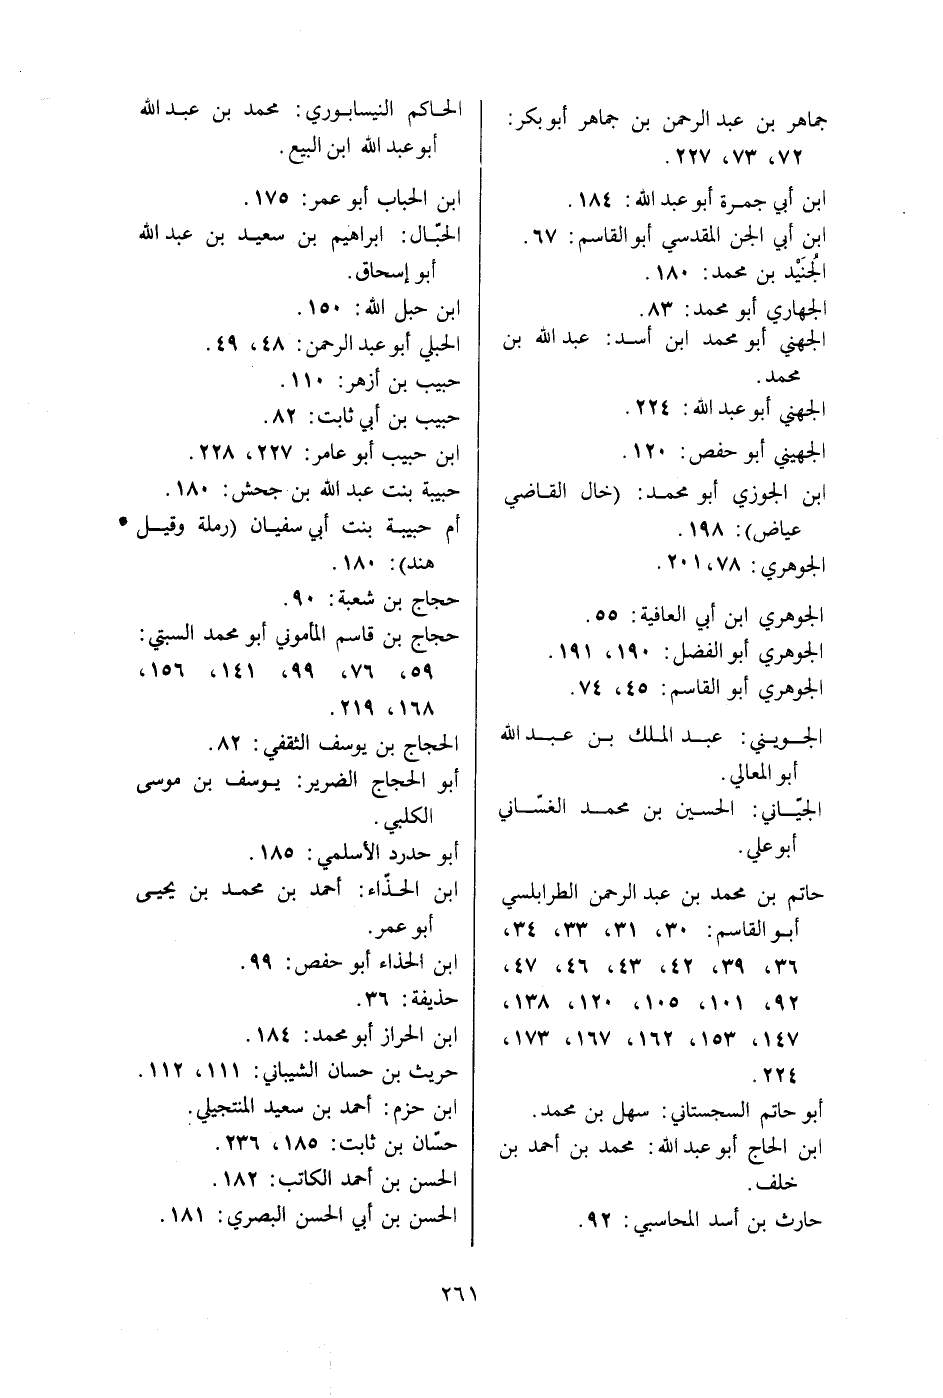 جماهر بن عبد الرحمن بن جماهر أبو بكر:
٧٢، ٧٣، ٢٢٧.
ابن أبي جمرة أبو عبد الله: ١٨٤.
ابن أبي الجن المقدسي أبو القاسم: ٦٧.
الجُنَيْد بن محمد: ١٨٠.
الجهاري أبو محمد: ٨٣.
الجهني أبو محمد ابن أسد: عبد الله بن
محمد.
الجهني أبو عبد الله: ٢٢٤.
الجهيني أبو حفص: ١٢٠.
ابن الجوزي أبو محمد: (خال القاضي
عياض): ١٩٨.
الجوهري: ٧٨، ٢٠١.
الجوهري ابن أبي العافية: ٥٥.
الجوهري أبو الفضل: ١٩٠، ١٩١.
الجوهري أبو القاسم: ٤٥، ٧٤.
الجويني: عبد الملك بن عبد الله
أبو المعالي.
الجيّاني: الحسين بن محمد الغسّاني
أبو علي.
حاتم بن محمد بن عبد الرحمن الطرابلسي
أبو القاسم: ٣٠، ٣١، ٣٣، ٣٤،
٣٦، ٣٩، ٤٢، ٤٣، ٤٦، ٤٧،
٩٢، ١٠١، ١٠٥، ١٢٠، ١٣٨،
١٤٧، ١٥٣، ١٦٢، ١٦٧، ١٧٣،
٢٢٤.
أبو حاتم السجستاني: سهل بن محمد.
ابن الحاج أبو عبد الله: محمد بن أحمد بن
خلف.
حارث بن أسد المحاسبي: ٩٢.
الحاكم النيسابوري: محمد بن عبد الله
أبو عبد الله ابن البيع.
ابن الحباب أبو عمر: ١٧٥.
الحبّال: ابراهيم بن سعيد بن عبد الله
أبو إسحاق.
ابن حبل الله: ١٥٠.
الحبلي أبو عبد الرحمن: ٤٨، ٤٩.
حبيب بن أزهر: ١١٠.
حبيب بن أبي ثابت: ٨٢.
ابن حبيب أبو عامر: ٢٢٧، ٢٢٨.
حبيبة بنت عبد الله بن جحش: ١٨٠.
أم حبيبة بنت أبي سفيان (رملة وقيل
هند): ١٨٠.
حجاج بن شعبة: ٩٠.
حجاج بن قاسم المأموني أبو محمد السبتي:
٥٩، ٧٦، ٩٩، ١٤١، ١٥٦،
١٦٨، ٢١٩.
الحجاج بن يوسف الثقفي: ٨٢.
أبو الحجاج الضرير: يوسف بن موسى
الكلبي.
أبو حدرد الأسلمي: ١٨٥.
ابن الحذّاء: أحمد بن محمد بن يحيى
أبو عمر.
ابن الحذاء أبو حفص: ٩٩.
حذيفة: ٣٦.
ابن الحراز أبو محمد: ١٨٤.
حريث بن حسان الشيباني: ١١١، ١١٢.
ابن حزم: أحمد بن سعيد المنتجيلي.
حسّان بن ثابت: ١٨٥، ٢٣٦.
الحسن بن أحمد الكاتب: ١٨٢.
الحسن بن أبي الحسن البصري: ١٨١.
٢٦١